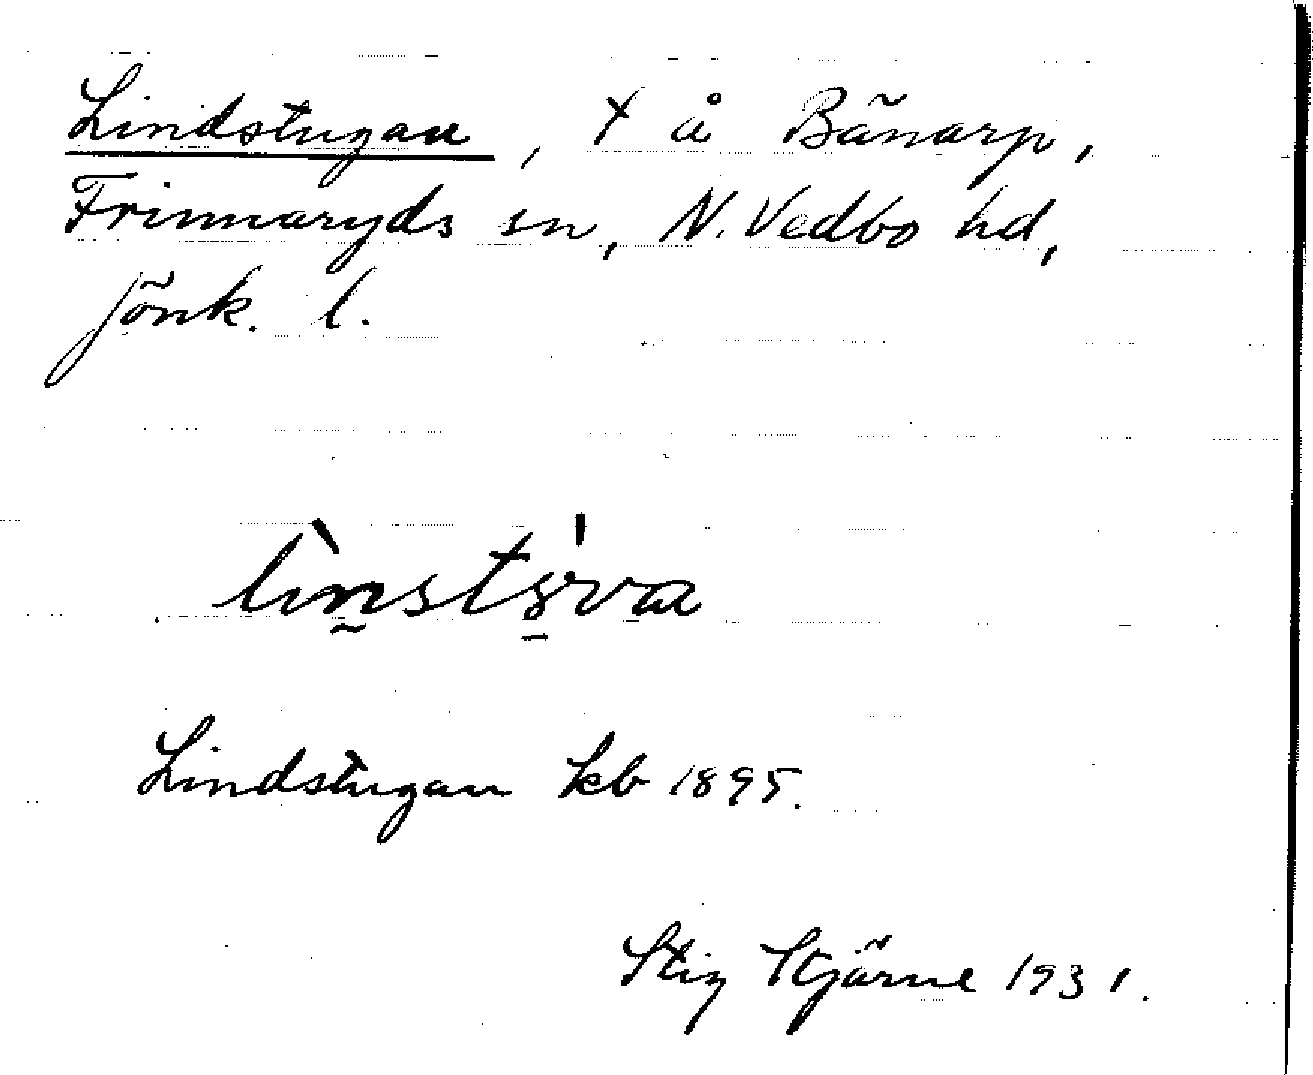 Lindstugan, † å Bänarp,
Frinnaryds sn, N. Vedbo hd,
Jönk. l.
Lindstugan kb 1895.
Stig Stjärne 1931.